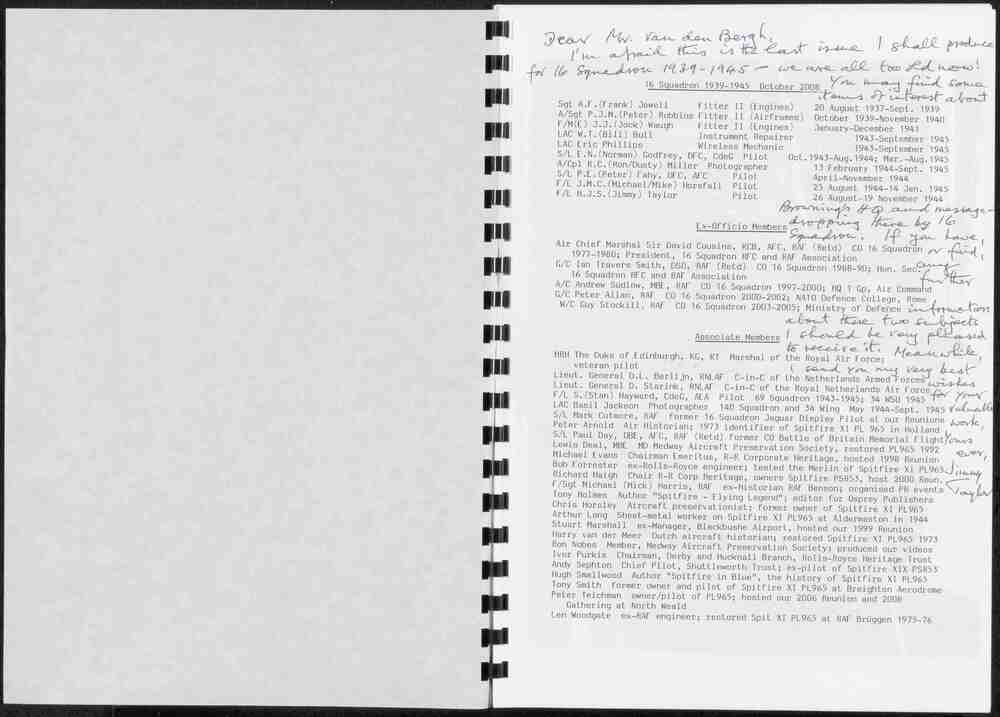 Dear Mr. van den Bergh,
I'm afraid this is the last issue I shall produce
for 16 Squadron 1939-1945 – we are all too old now!
You may find some
16 Squadron 1939-1945 October 2008
items of interest about
Sgt A.F.(Frank) Jowell Fitter II (Engines) 20 August 1937-Sept. 1939
A/Sgt P.J.M.(Peter) Robbins Fitter II (Airframes) October 1939-November 1940
F/M(E) J.J.(Jock) Waugh Fitter II (Engines) January-December 1941
LAC W.T.(Bill) Bull Instrument Repairer 1943-September 1945
LAC Eric Phillips Wireless Mechanic 1943-September 1945
S/L E.N.(Norman) Godfrey, DFC, CdeG Pilot Oct.1943-Aug.1944; Mar.-Aug.1945
A/Cpl R.C.(Ron/Dusty) Miller Photographer 13 February 1944-Sept. 1945
S/L P.E.(Peter) Fahy, DFC, AFC Pilot April-November 1944
F/L J.M.C.(Michael/Mike) Horsfall Pilot 25 August 1944-14 Jan. 1945
F/L H.J.S.(Jimmy) Taylor Pilot 26 August-19 November 1944
Browning's HQ and message-
dropping there by 16
Ex-Officio Members
Squadron. If you have,
Air Chief Marshal Sir David Cousins, KCB, AFC, RAF (Retd) CO 16 Squadron or find,
1977-1980; President, 16 Squadron RFC and RAF Association
any
G/C Ian Travers Smith, DSO, RAF (Retd) CO 16 Squadron 1988-90; Hon. Sec.
further
16 Squadron RFC and RAF Association
A/C Andrew Sudlow, MBE, RAF CO 16 Squadron 1997-2000; HQ 1 Gp, Air Command
G/C Peter Allan, RAF CO 16 Squadron 2000-2002; NATO Defence College, Rome
W/C Guy Stockill, RAF CO 16 Squadron 2003-2005; Ministry of Defence information
about these two subjects
Associate Members I should be very pleased
to receive it. Meanwhile,
HRH The Duke of Edinburgh, KG, KT Marshal of the Royal Air Force;
veteran pilot I send you my very best
Lieut. General D.L. Berlijn, RNLAF C-in-C of the Netherlands Armed Forces wishes
Lieut. General D. Starink, RNLAF C-in-C of the Royal Netherlands Air Force for your
F/L S.(Stan) Hayward, CdeG, AEA Pilot 69 Squadron 1943-1945; 34 WSU 1945
LAC Basil Jackson Photographer 140 Squadron and 34 Wing May 1944-Sept. 1945 valuable
S/L Mark Cutmore, RAF former 16 Squadron Jaguar Display Pilot at our Reunions work,
Peter Arnold Air Historian; 1973 identifier of Spitfire XI PL 965 in Holland
S/L Paul Day, OBE, AFC, RAF (Retd) former CO Battle of Britain Memorial Flight Yours
Lewis Deal, MBE MD Medway Aircraft Preservation Society, restored PL965 1992
ever,
Michael Evans Chairman Emeritus, R-R Corporate Heritage, hosted 1998 Reunion
Bob Forrester ex-Rolls-Royce engineer; tested the Merlin of Spitfire XI PL965 Jimmy
Richard Haigh Chair R-R Corp Heritage, owners Spitfire PS853, host 2000 Reun.
F/Sgt Michael (Mick) Harris, RAF ex-Historian RAF Benson; organised PR events Taylor
Tony Holmes Author "Spitfire - Flying Legend"; editor for Osprey Publishers
Chris Horsley Aircraft preservationist; former owner of Spitfire XI PL965
Arthur Long Sheet-metal worker on Spitfire XI PL965 at Aldermaston in 1944
Stuart Marshall ex-Manager, Blackbushe Airport, hosted our 1999 Reunion
Harry van der Meer Dutch aircraft historian; restored Spitfire XI PL965 1973
Ron Nobes Member, Medway Aircraft Preservation Society; produced our videos
Ivor Purkis Chairman, Derby and Hucknall Branch, Rolls-Royce Heritage Trust
Andy Sephton Chief Pilot, Shuttleworth Trust; ex-pilot of Spitfire XIX PS853
Hugh Smallwood Author "Spitfire in Blue", the history of Spitfire XI PL965
Tony Smith former owner and pilot of Spitfire XI PL965 at Breighton Aerodrome
Peter Teichman owner/pilot of PL965; hosted our 2006 Reunion and 2008
Gathering at North Weald
Len Woodgate ex-RAF engineer; restored Spit XI PL965 at RAF Brüggen 1975-76